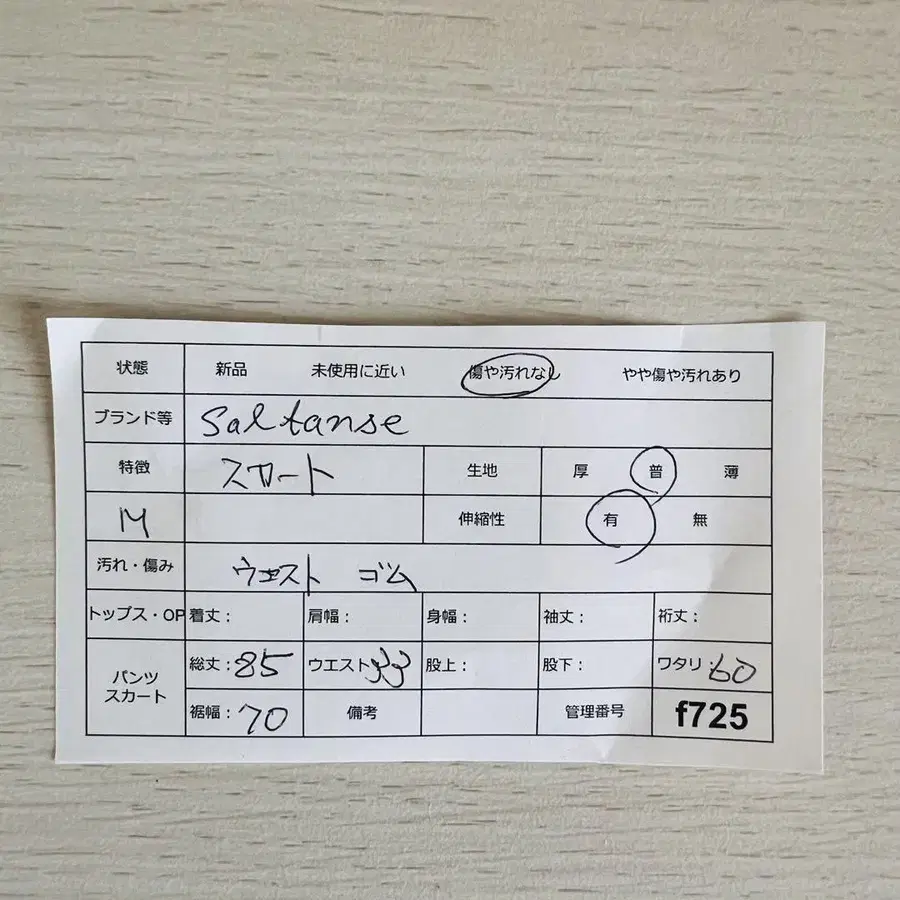 状態 新品 未使用に近い 傷や汚れなし やや傷や汚れあり
ブランド等 Saltanse
特徴 スカート 生地 厚 普 薄
M 伸縮性 有 無
汚れ・傷み ウエスト ゴム
トップス・OP 着丈: 肩幅: 身幅: 袖丈: 裄丈:
パンツ
スカート
総丈:85 ウエスト33 股上: 股下: ワタリ:60
裾幅:70 備考 管理番号 f725